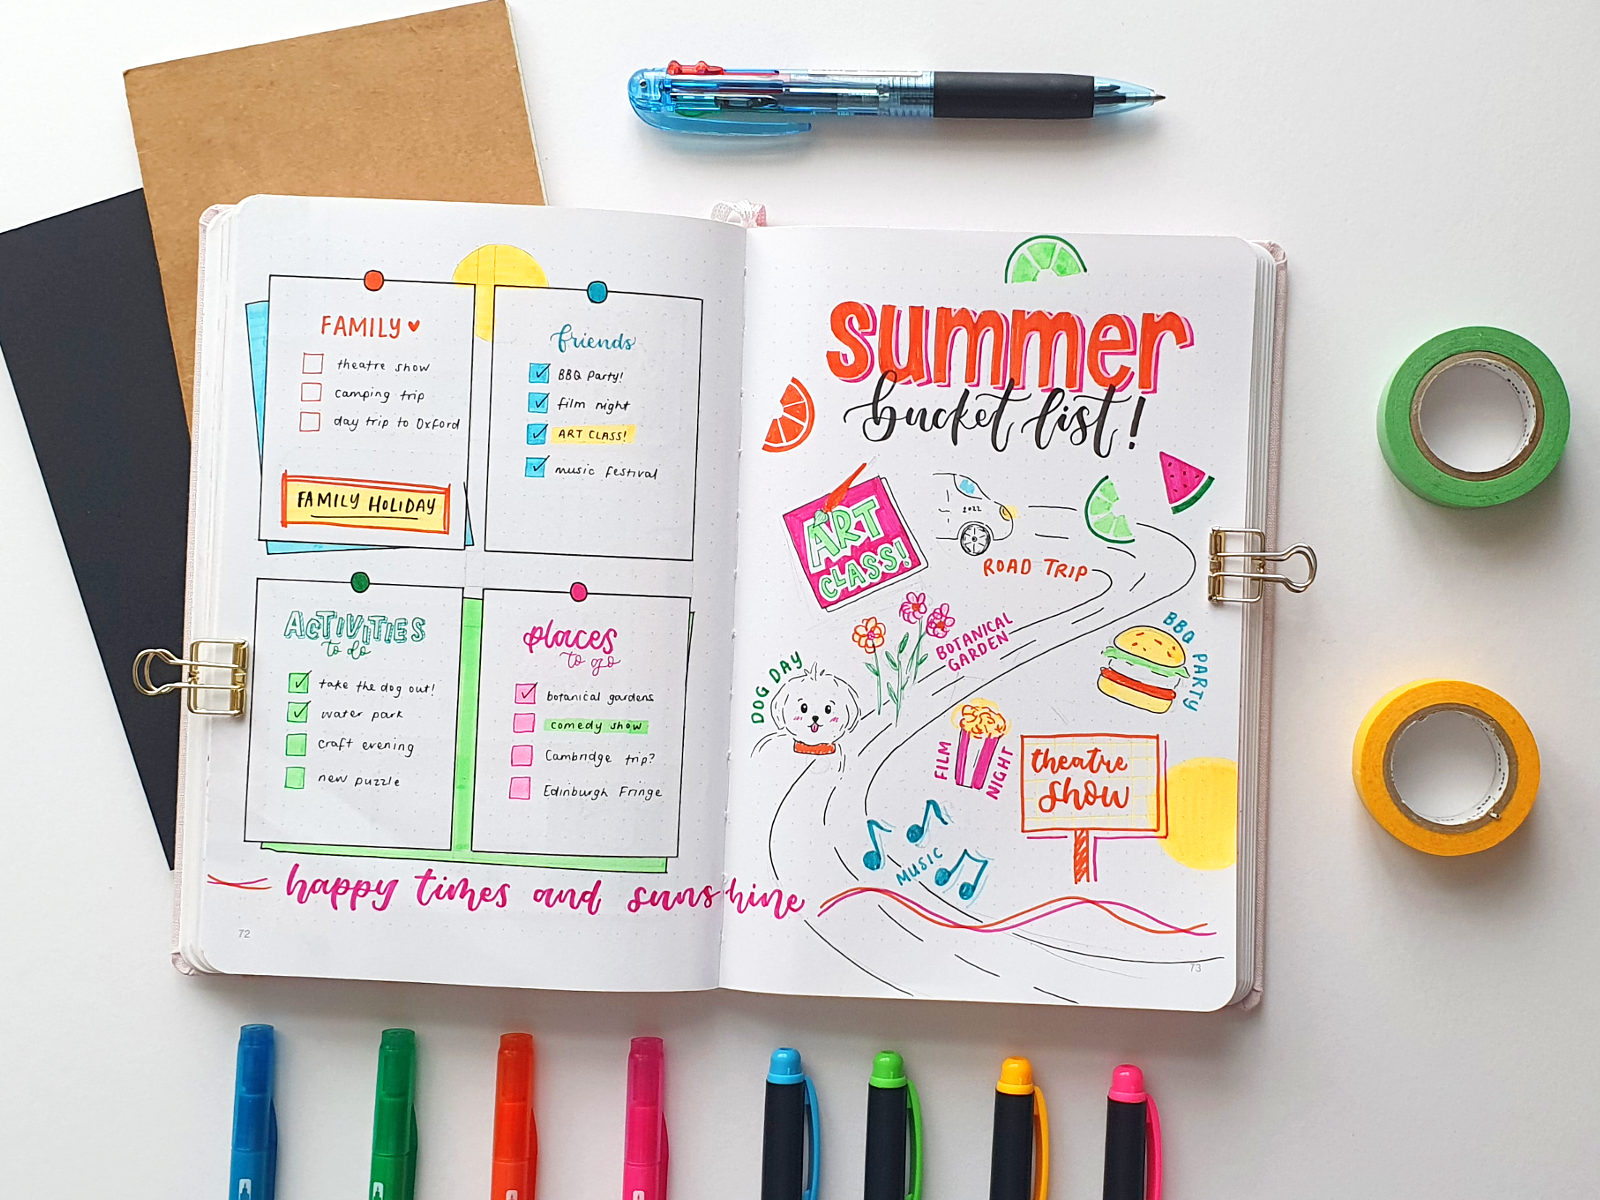 FAMILY
theatre show
camping trip
day trip to Oxford
FAMILY HOLIDAY
friends
BBQ Party!
film night
ART CLASS!
music festival
ACTIVITIES
to do
take the dog out!
water park
craft evening
new puzzle
places
to go
botanical gardens
comedy show
Cambridge trip?
Edinburgh Fringe
happy times and sunshine
72
summer
bucket list!
ART
CLASS!
2022
ROAD TRIP
BOTANICAL
GARDEN
BBQ PARTY
DOG DAY
FILM
NIGHT
theatre
show
MUSIC
73